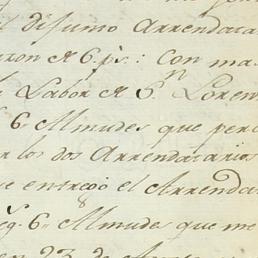 el difunto Arrendata
razon A 6. ps.: Con ma
Labor A Sn. Loren
6 Almudes que per
los dos Arrendatarios
se entregó el Arrenda
8
6 Almudes que me
23 de